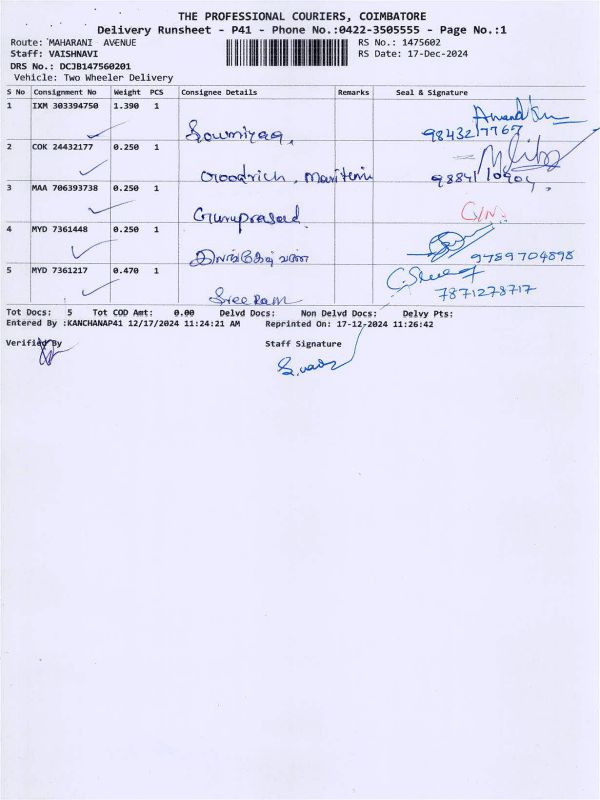 THE PROFESSIONAL COURIERS, COIMBATORE
Delivery Runsheet - P41 - Phone No.:0422-3505555 - Page No.:1
Route: MAHARANI AVENUE RS No.: 1475602
Staff: VAISHNAVI RS Date: 17-Dec-2024
DRS No.: DCJB147560201
Vehicle: Two Wheeler Delivery
S No Consignment No Weight PCS Consignee Details Remarks Seal & Signature
1 IXM 303394750 1.390 1
9843217767
2 COK 24432177 0.250 1
Goodrich, 
3 MAA 706393738 0.250 1
Guruprasad
4 MYD 7361448 0.250 1
9789704898
5 MYD 7361217 0.470 1
Sree Ram 7871278717
Tot Docs: 5 Tot COD Amt: 0.00 Delvd Docs: Non Delvd Docs: Delvy Pts:
Entered By :KANCHANAP41 12/17/2024 11:24:21 AM Reprinted On: 17-12-2024 11:26:42
Verified By Staff Signature